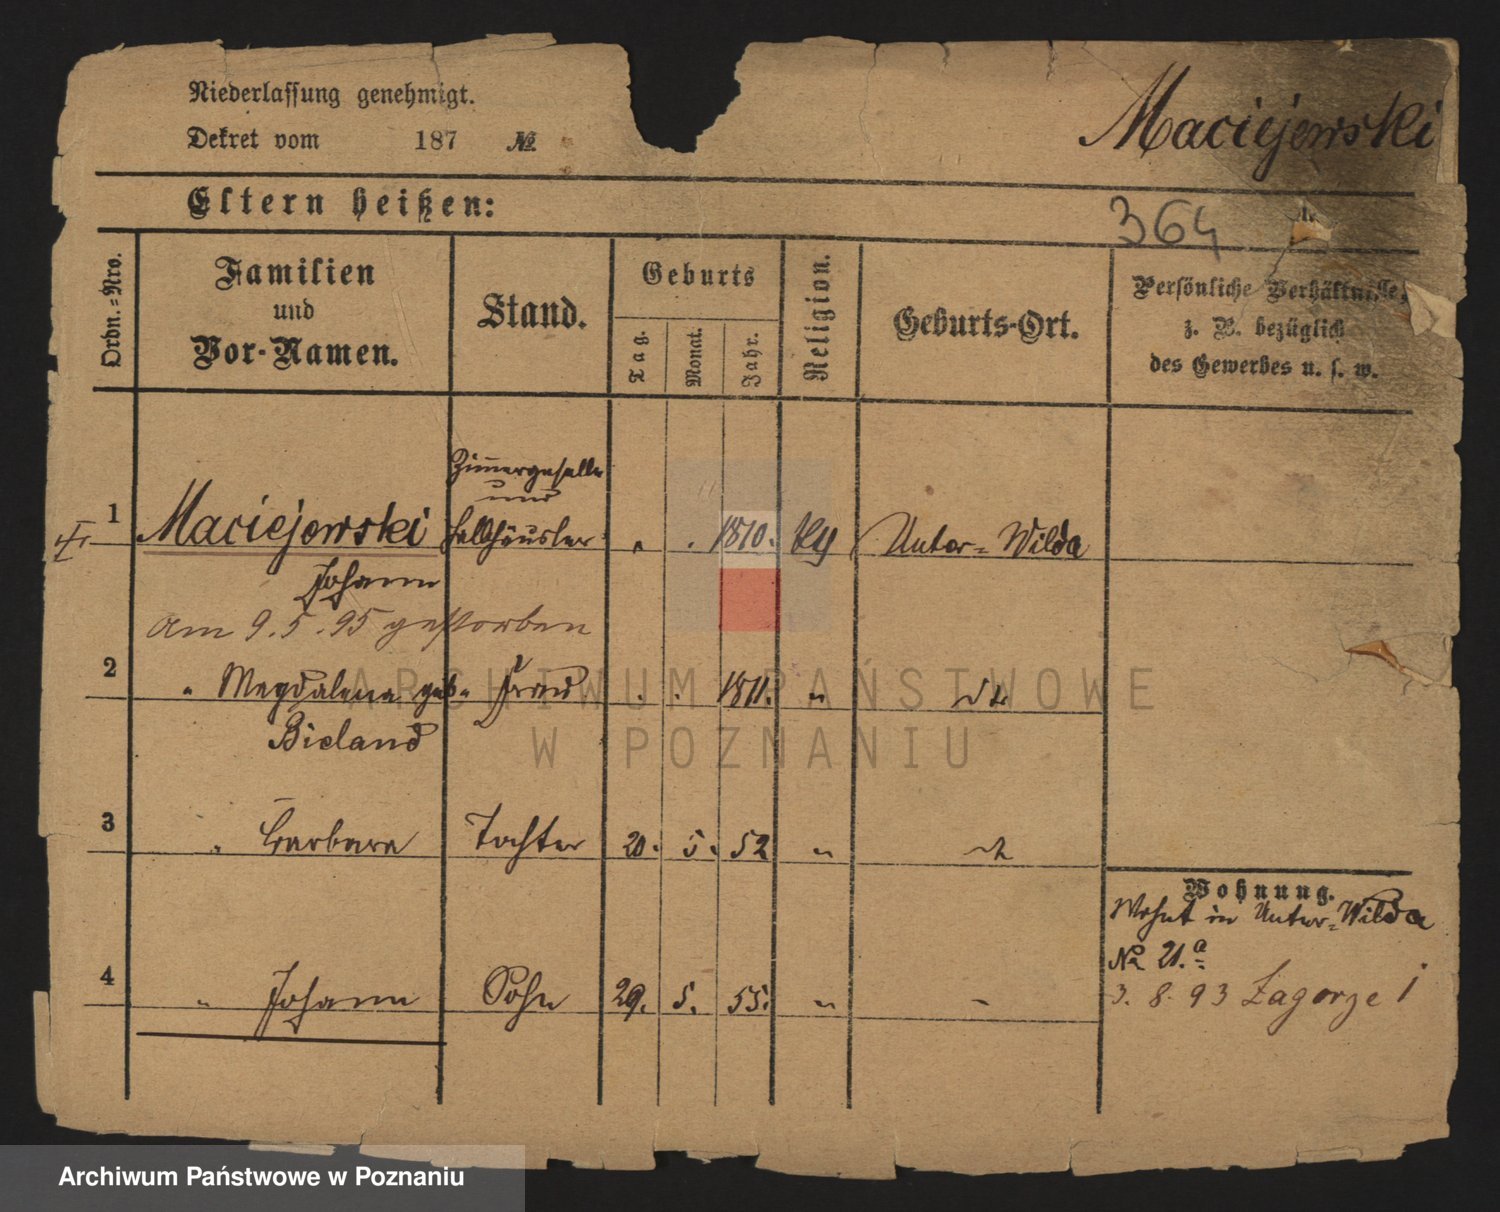 Niederlassung genehmigt.
Dekret vom 187 №
Maciejewski
Eltern heißen:
364
Ordn.=Nro.
Familien
und
Vor-Namen.
Stand.
Geburts
Tag.
Monat.
Jahr.
Religion.
Geburts-Ort.
Persönliche Verhältnisse,
z. B. bezüglich
des Gewerbes u. s. w.
Zimergeselle
und
1 Maciejewski 1810. Unter=Wilda
Johann
am 9.5.95 gestorben
2 " Magdalena geb. Frau 1811. " dto
Bieland
3 " Barbara Tochter 20. 5. 52 "
Wohnung.
Wohnt in Unter=Wilda
№ 21.a
4 " Johann Sohn 29. 5. 55. "
3. 8. 93 Zagorze 1
ARCHIWUM PAŃSTWOWE
W POZNANIU
Archiwum Państwowe w Poznaniu